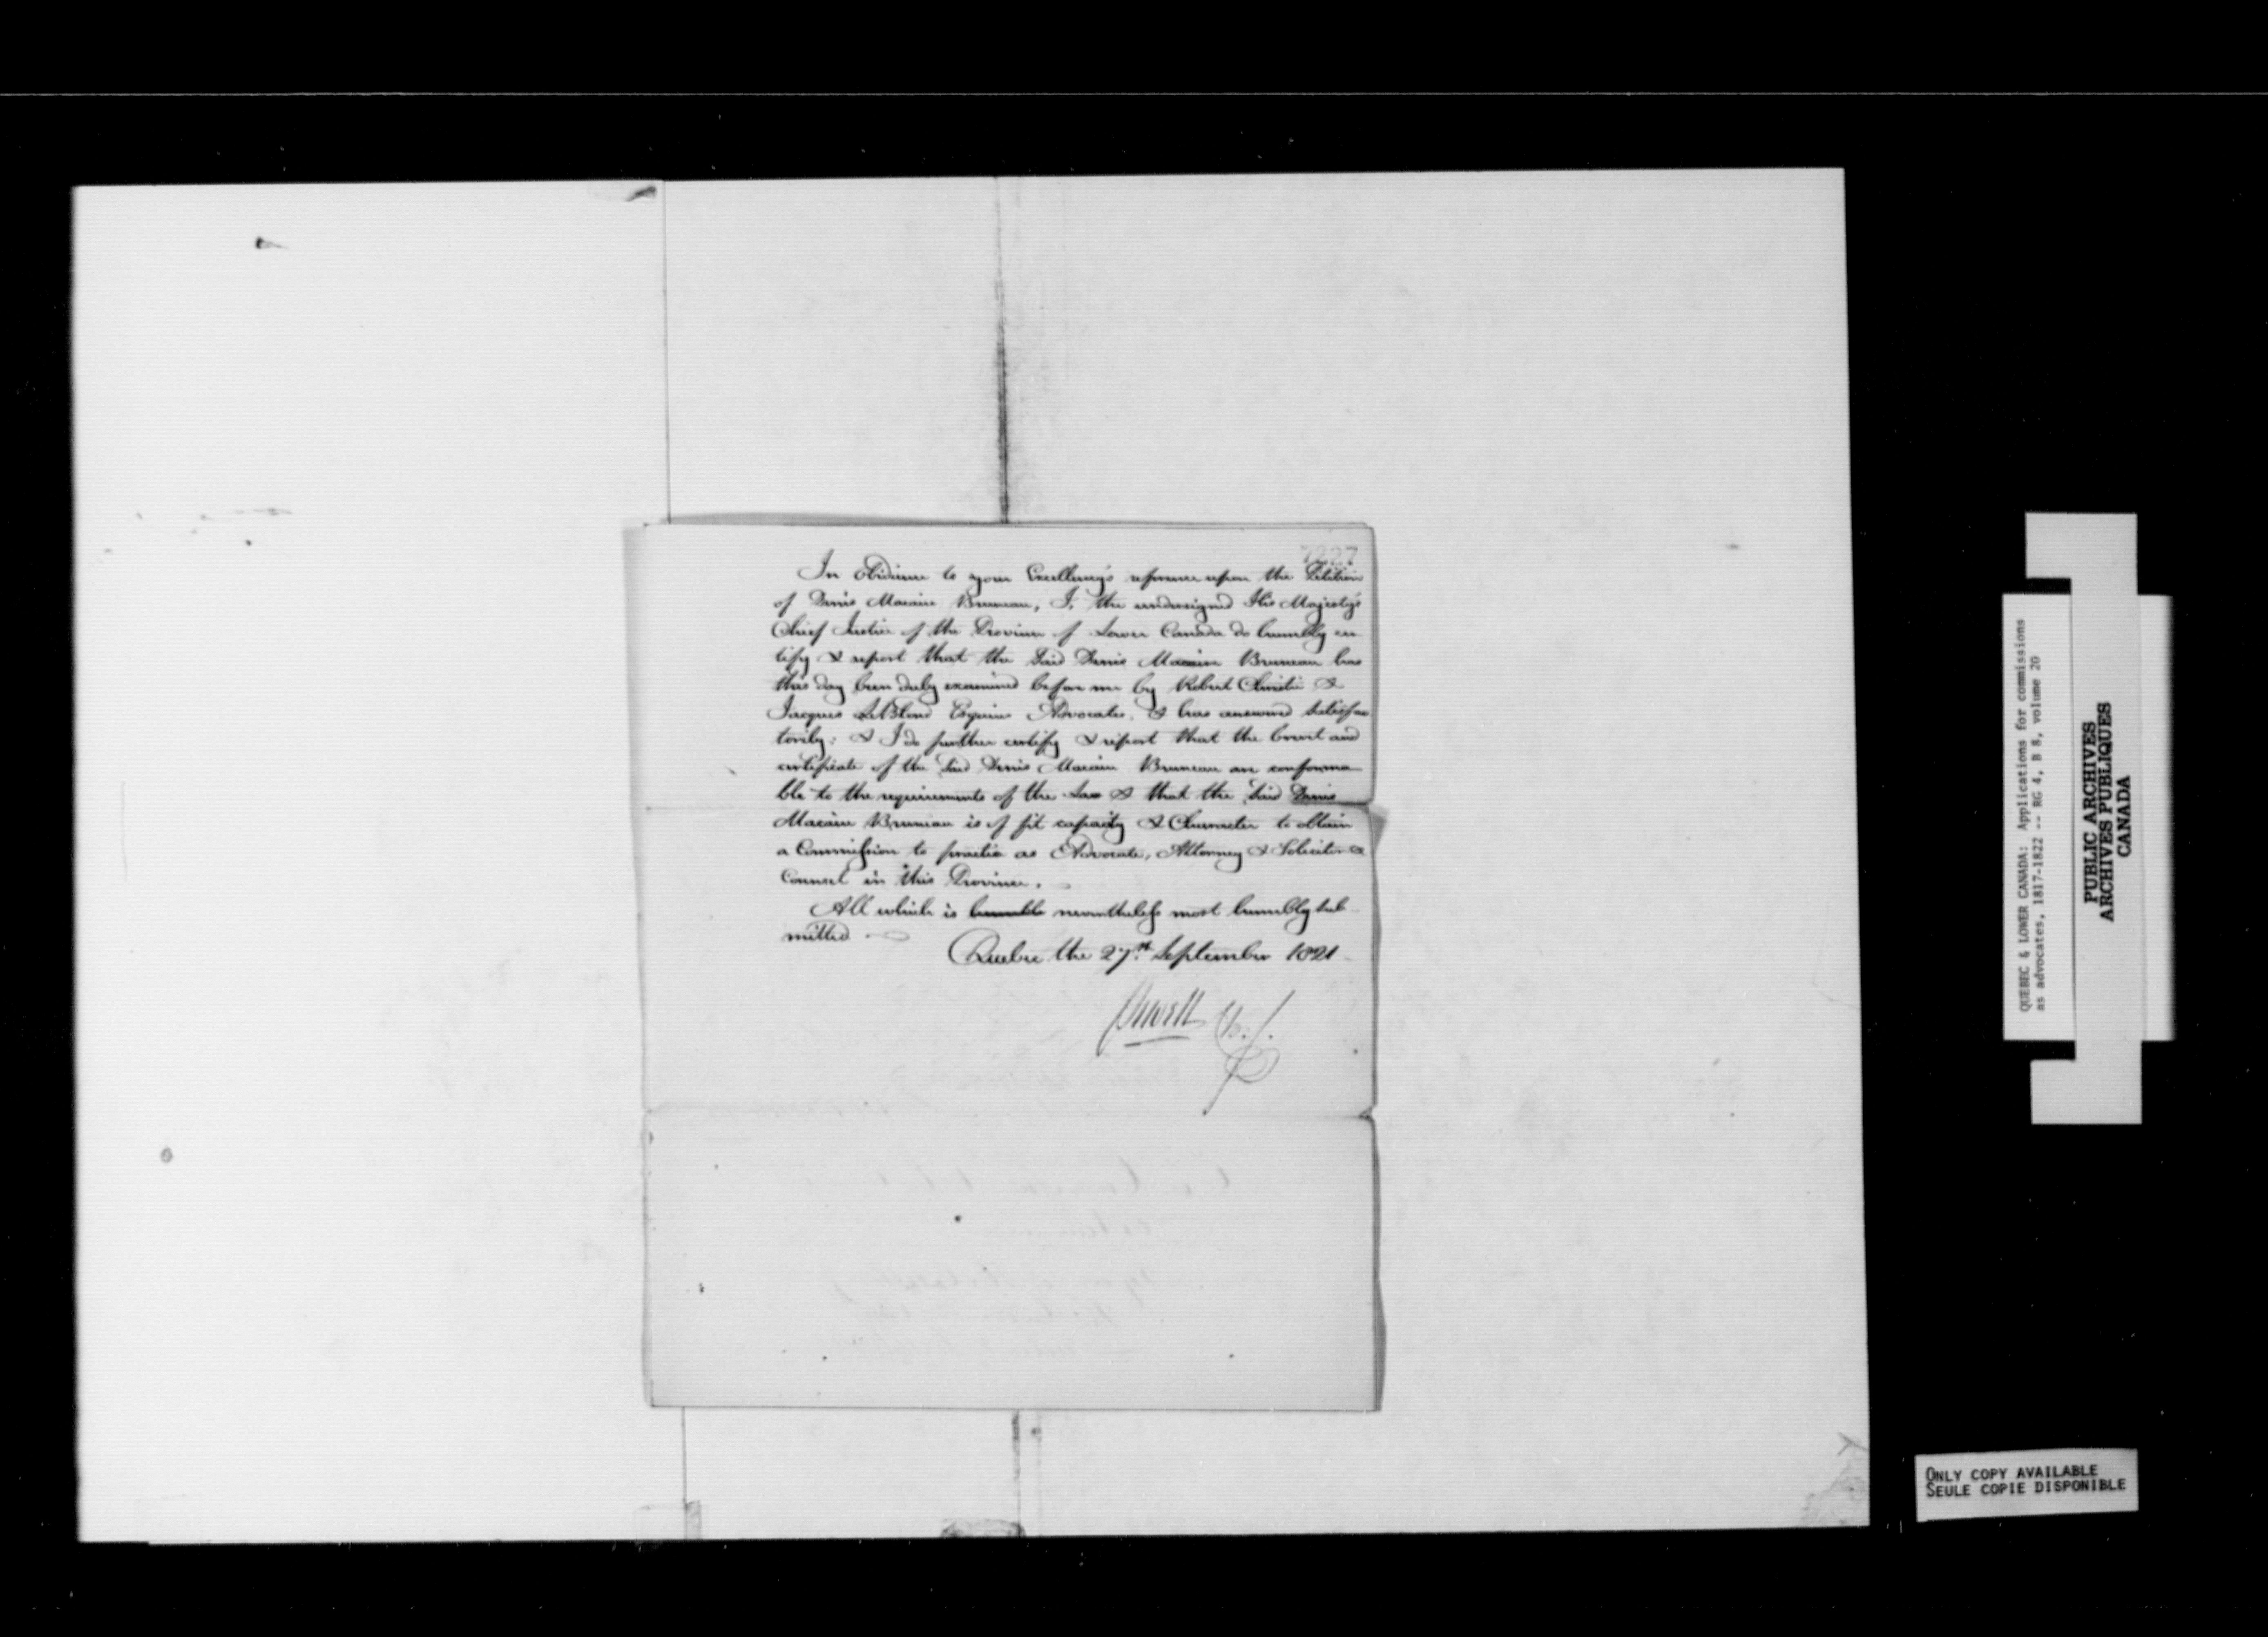 7227
In obedience to your Excellency's reference upon the Petition
of Denis Maxime Bruneau, I, the undersigned His Majesty's
Chief Justice of the Province of Lower Canada do humbly cer-
tify & report that the Said Denis Maxime Bruneau has
this day been duly examined before me by Robert Christie &
Jacques LeBlond Esquires Advocates, & has answered satisfac-
torily: & I do further certify & report that the brevet and
certificate of the Said Denis Maxime Bruneau are conforma-
ble to the requirements of the Law & that the Said Denis
Maxime Bruneau is of fit capacity & Character to obtain
a Commission to practice as Advocate, Attorney & Solicitor &
Counsel in this Province.
All which is humble nevertheless most humbly sub-
mitted
Quebec the 27th September 1821
JSewell Ch: J.
QUEBEC & LOWER CANADA: Applications for commissions
as advocates, 1817-1822 -- RG 4, B 8, volume 20
PUBLIC ARCHIVES
ARCHIVES PUBLIQUES
CANADA
ONLY COPY AVAILABLE
SEULE COPIE DISPONIBLE